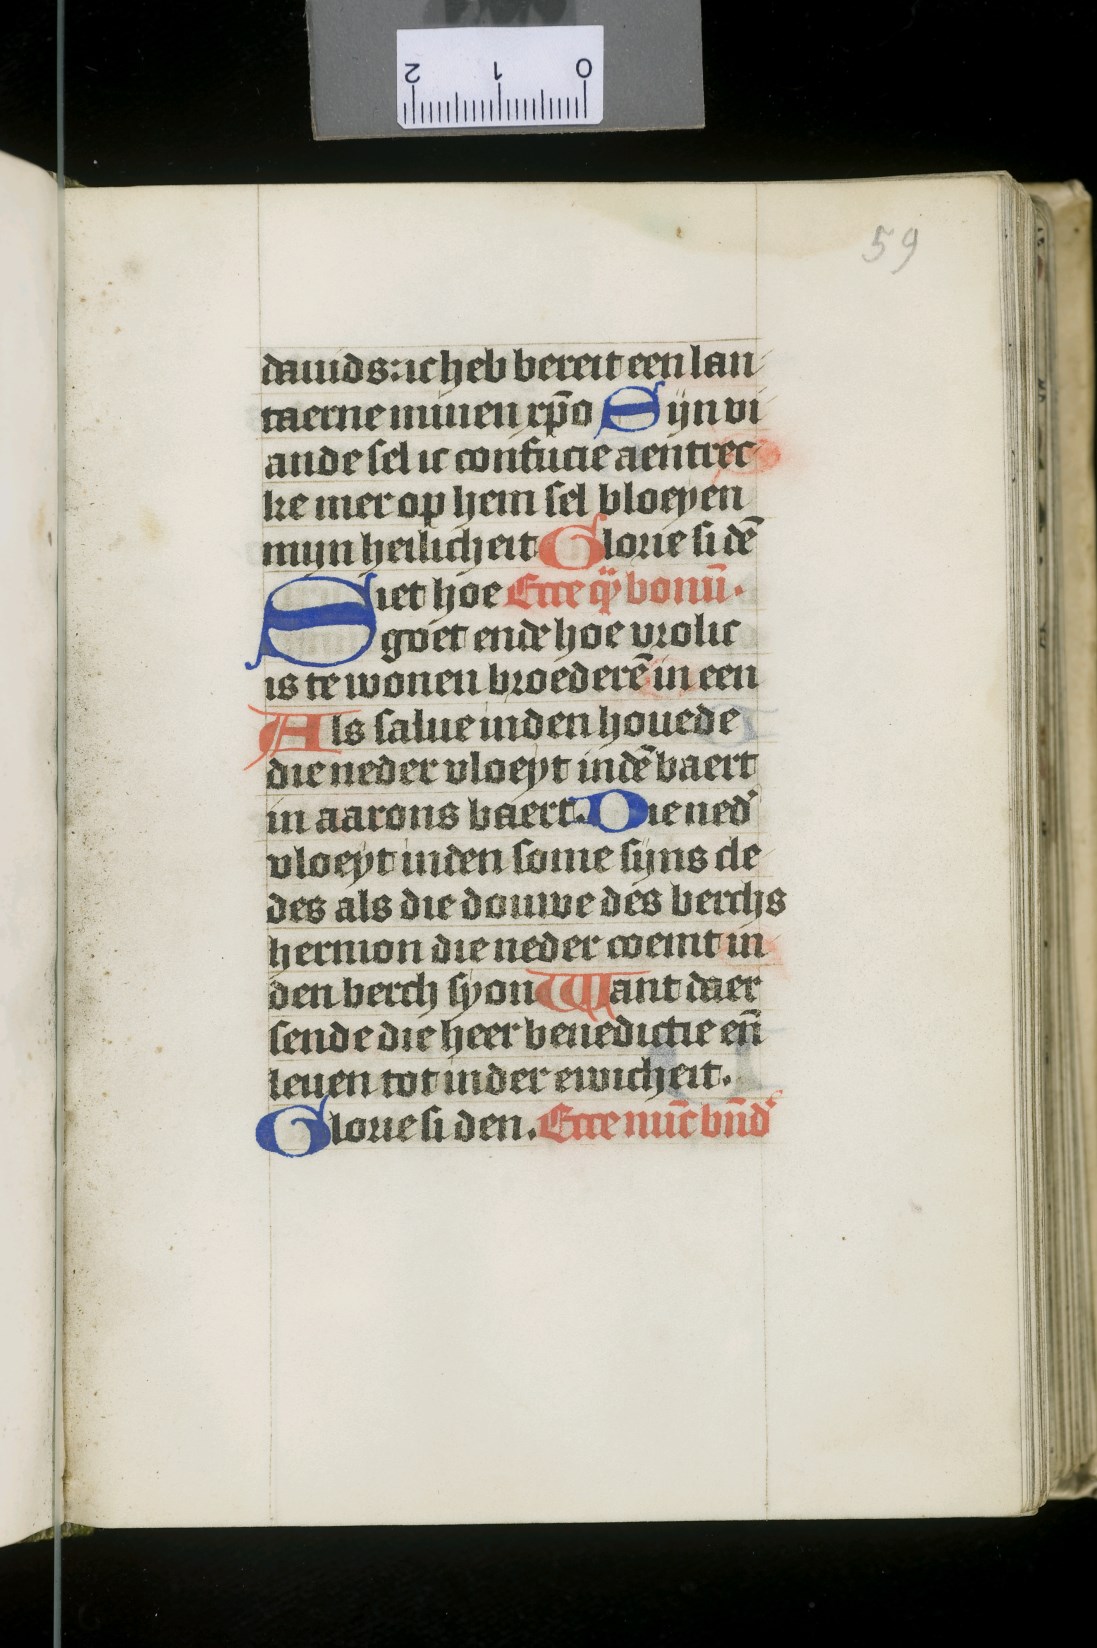 2 1 0
59
dauids: ic heb bereit een lan
taerne minen xp̄o Sijn vi
ande sel ic confucie aentrec
ke mer op hem sel bloeyen
mijn heilicheit Glorie si dē
Siet hoe Ecce q̄ bonū.
goet ende hoe vrolic
is te wonen broederē in een
Als salue inden houede
die neder vloeyt indē baert
in aarons baert. Die ned'
vloeyt inden some sijns cle
des als die douwe des berchs
hermon die neder coemt in
den berch syon Want daer
sende die heer benedictie en̄
leuen tot inder ewicheit.
Glorie si den. Ecce nūc bn̄d'